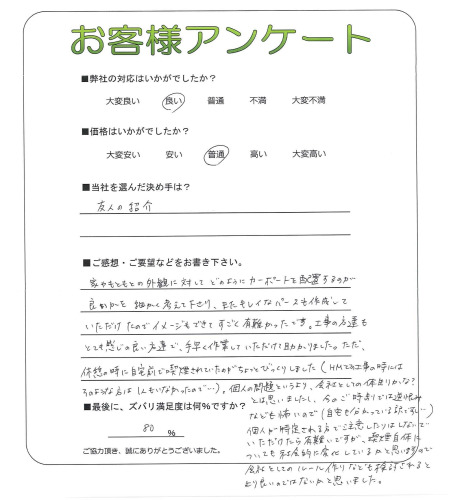 お客様アンケート
■弊社の対応はいかがでしたか？
大変良い 良い 普通 不満 大変不満
■価格はいかがでしたか？
大変安い 安い 普通 高い 大変高い
■当社を選んだ決め手は？
友人の紹介
■ご感想・ご要望などをお書き下さい。
家やもともとの外観に対してどのようにカーポートを配置するのが
良いかを細かく考えて下さり、またキレイなパースも作成して
いただけたのでイメージもできてすごく有難かったです。工事の方達も
とても感じの良い方達で、手早く作業していただけて助かりました。ただ、
休憩の時に自宅前で喫煙されていたのがちょっとびっくりしました（HMでの工事の時には
そのような方は1人もいなかったので…）。個人の問題というより、会社としての体質かな？
とは思いましたし、今のご時勢では
■最後に、ズバリ満足度は何％ですか？
なども怖いので（自宅も分かっている訳ですし…）
80 ％
個人が特定される方で注意したりはしないで
いただけたら有難いですが、喫煙自体に
ご協力頂き、誠にありがとうございました。
ついても社会的に変化しているかと思いますので
会社としてのルール作りなども検討されると
より良いのではないかと思いました。